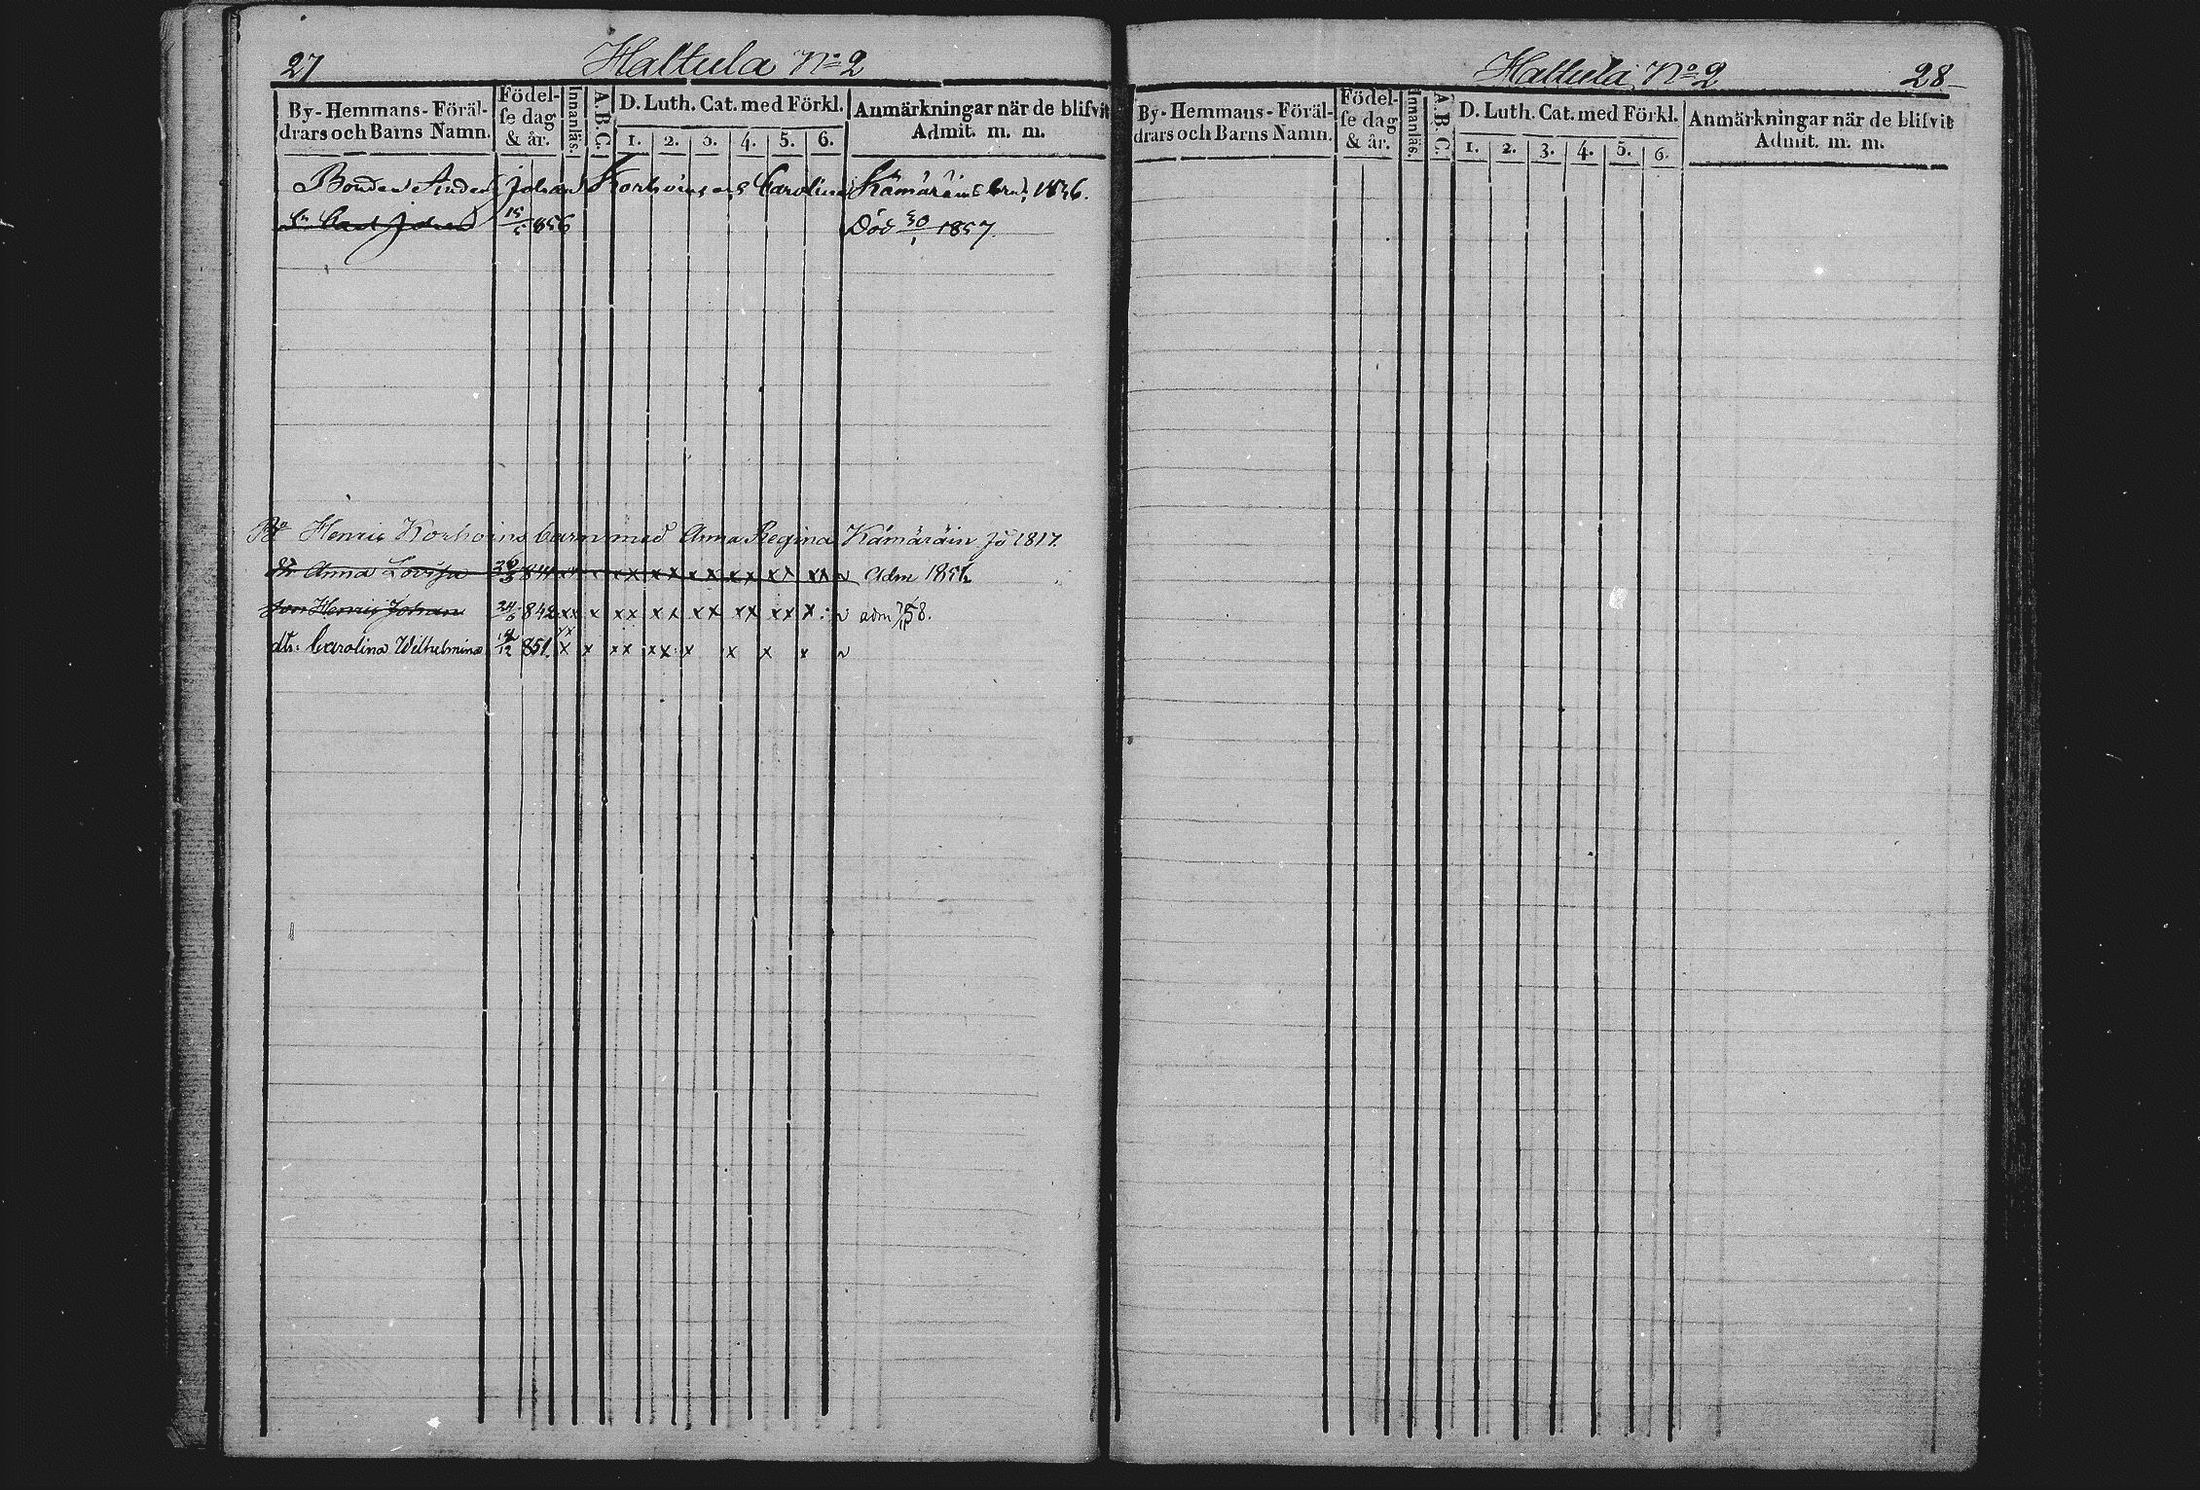 27 Haltula No 2
By-Hemmans-Föräl-
drars och Barns Namn.
Födel-
se dag
& år.
Innanläs.
A.B.C.
D. Luth. Cat. med Förkl.
1. 2. 3. 4. 5. 6.
Anmärkningar när de blifvit
Admit. m. m.
Bonden Anders Johan Korhoinens Carolina Kämäräins barn, 1836.
Sn Carl Johan 15/5 856 Död 30/1 1857
Bd Henric Korhoins barn med Anna Regina Kämäräin fö 1817.
dr Anna Lovisa 841 xx x xx xx xx xx xx xx Adm 1857
son Henric Johan 24/6 842 xx x xx xx xx xx xx x adm 58.
xx
dtr: Carolina Wilhelmina 12/12 851. x x xx xx x x x x
Haltula No 2 28
By-Hemmans-Föräl-
drars och Barns Namn.
Födel-
se dag
& år.
Innanläs.
A.B.C.
D. Luth. Cat. med Förkl.
1. 2. 3. 4. 5. 6.
Anmärkningar när de blifvit
Admit. m. m.